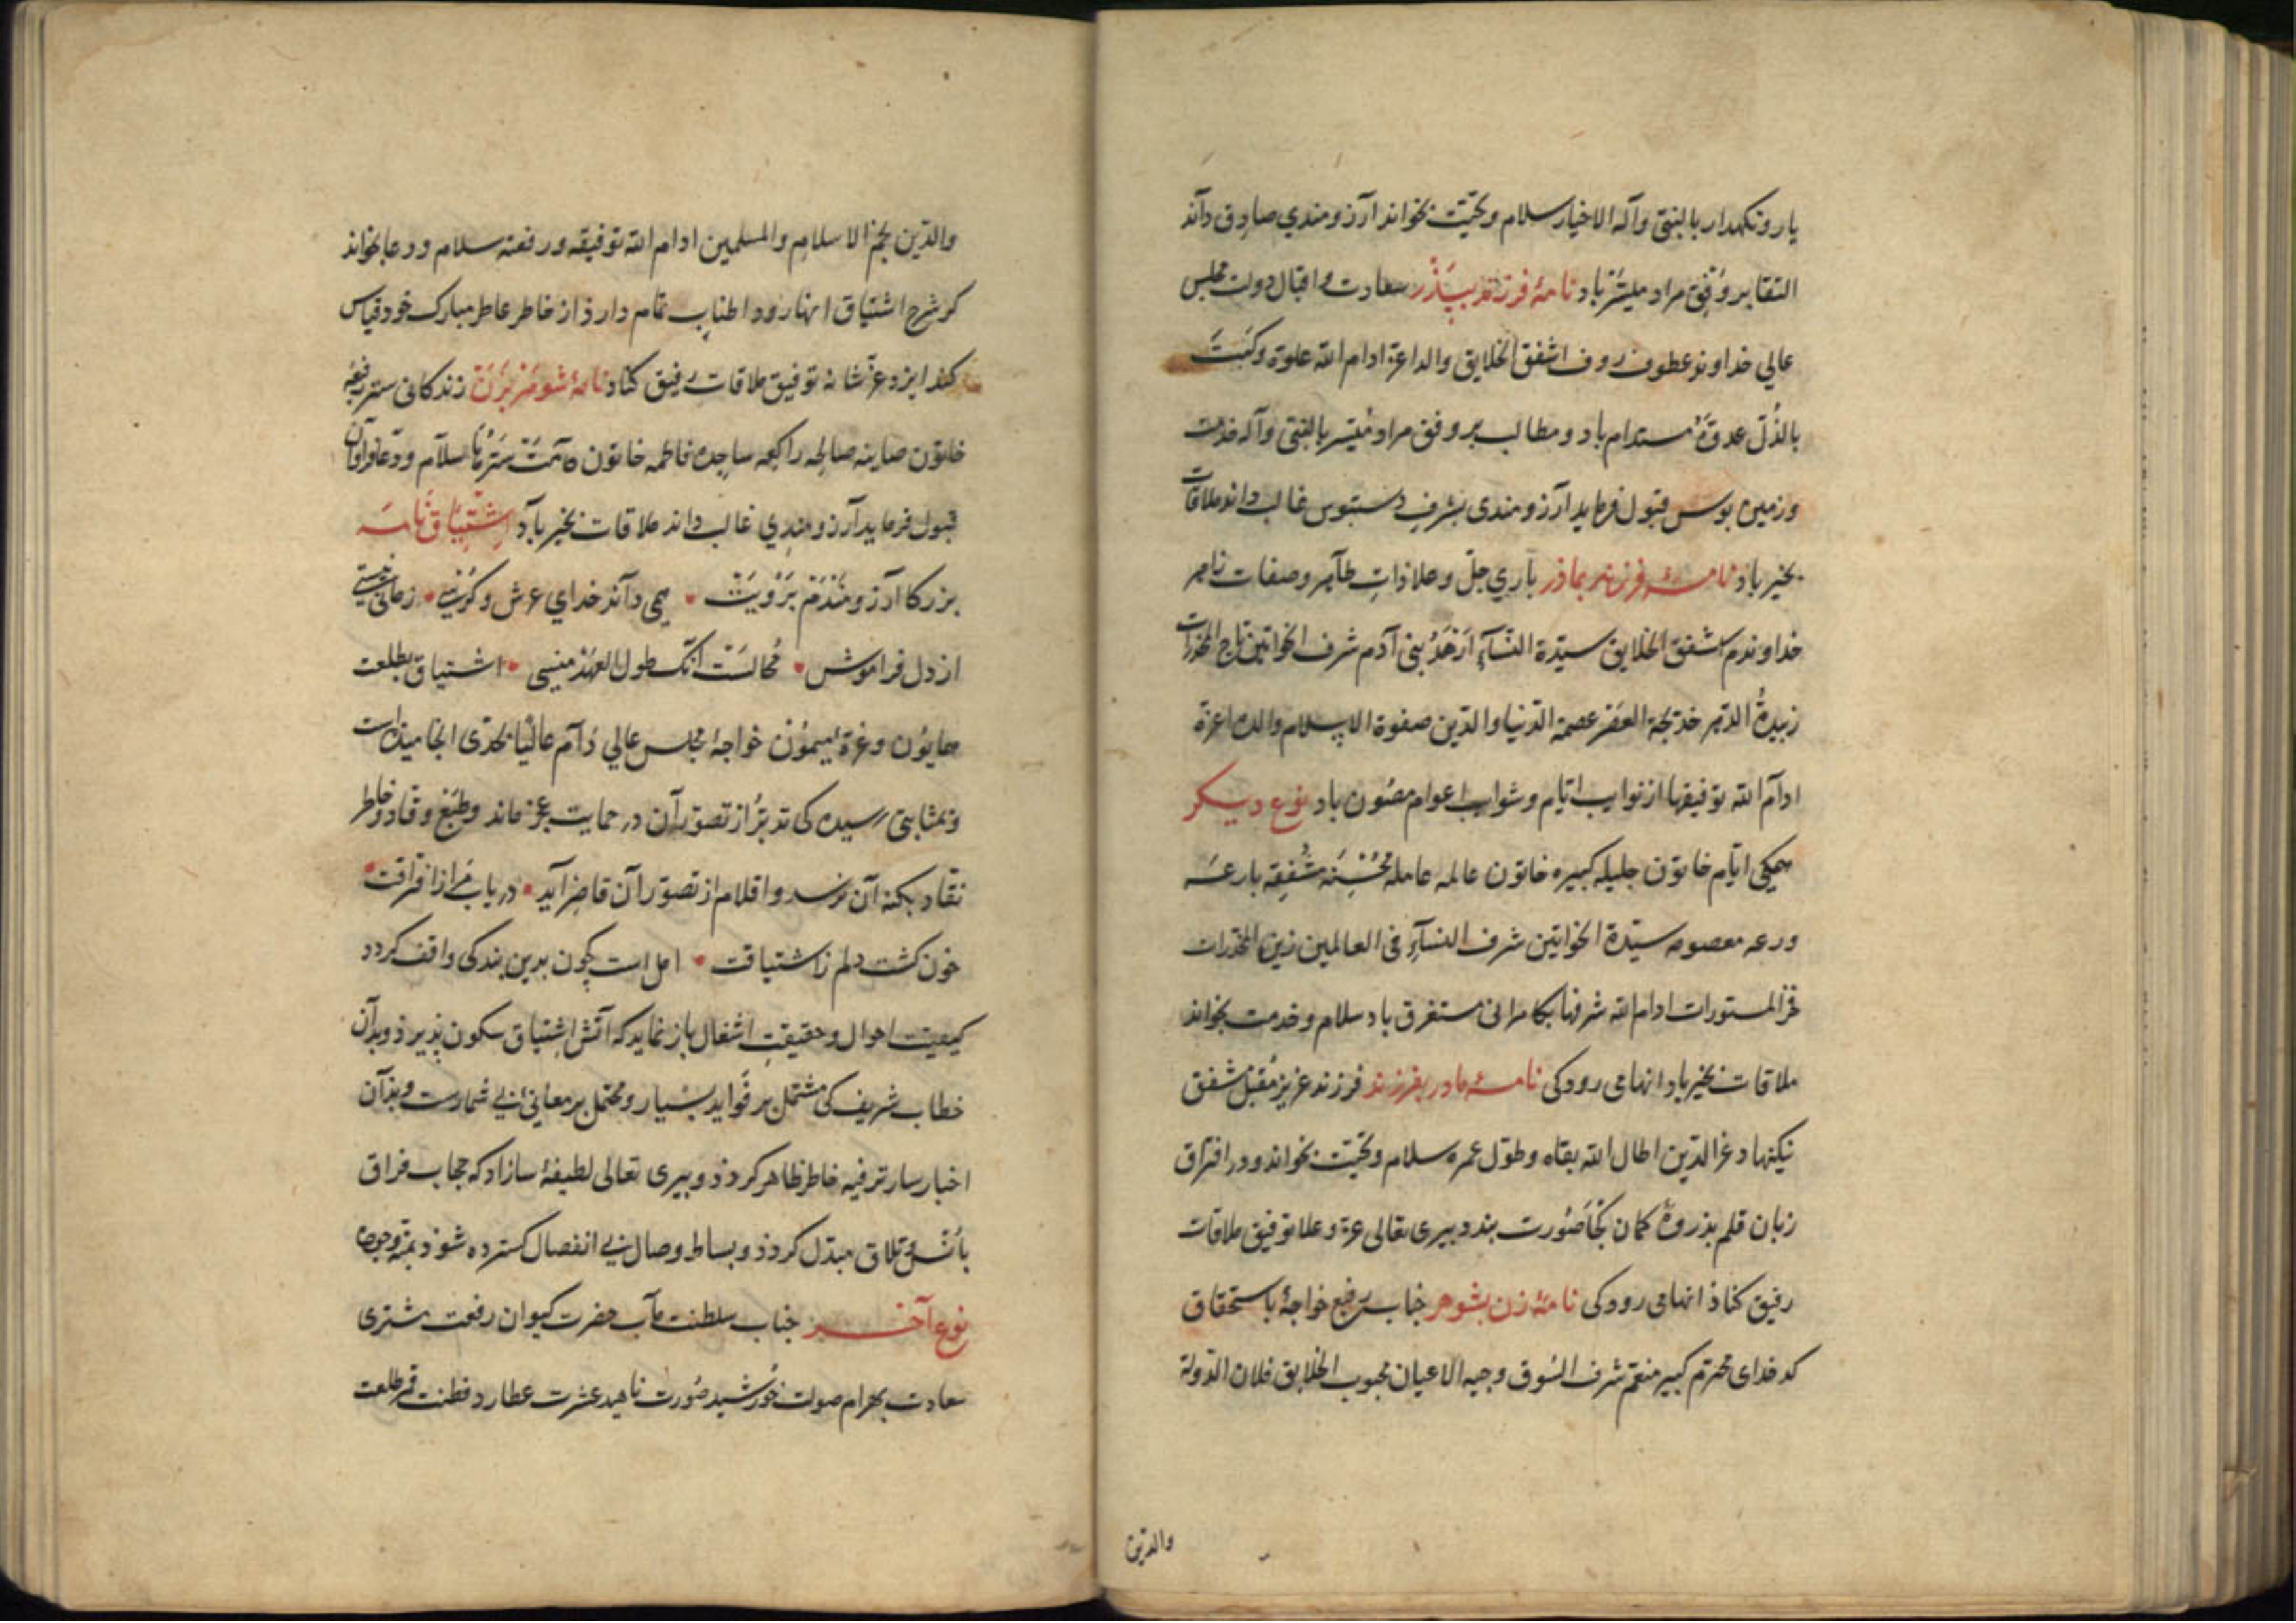 یار و نکهدار بالنبی وآله الاخیار سلام و تحیّت بخواند آرزومندي صادق داند
التقا بر وفق مراد میسّر باد نامهٔ فرزند ببذر سعادت و اقبال دولت مجلس
عالي خداوند عطوف روف اشفق الخلایق والد اعزّ ادام الله علوه وکبت
بالذّل عدوّه مستدام باد و مطالب بر وفق مراد میسّر بالنبی وآله خدمت
و زمین بوس قبول فرماید آرزومندی بشرف دستبوس غالب داند ملاقات
بخیر باذ نامهٔ فرزند بماذر باري جلّ وعلا ذات طاهر وصفات
خداوندم اشفق الخلایق سیّدة النّسآء ازهد بنی آدم شرف الخواتین تاج المخدّرات
زبیدة الدّهر خدیجة العصر عصمة الدّنیا والدّین صفوة الاسلام والده اعزّه
ادام الله توفیقها از نوایب ایّام و شوایب اعوام مصون باد نوع دیکر
همکی ایّام خاتون جلیله کبیره خاتون عالمه عامله محسنه مشفقه بارعه
ورعه معصومه سیّدة الخواتین شرف النسآء فی العالمین زین المخدّرات
فخر المستورات ادام الله شرفها بکامرانی مستغرق باد سلام و خدمت بخواند
ملاقات بخیر باد انها می رود کی نامهٔ مادر بفرزند فرزند عزیز مقبل مشفق
نیکنهاد عزّ الدّین اطال الله بقاه وطوّل عمره سلام و تحیّت بخواند و در افتراق
زبان قلم بذروهٔ کمان کجا صورت بندد بیری تعالی عزّ وعلا توفیق ملاقات
رفیق کناذ انها می رود کی نامهٔ زن بشوهر جناب رفیع خواجهٔ باستحقاق
کدخدای محترم کبیر منعم شرف السّوق وجیه الاعیان محبوب الخلایق فلان الدّولة
والدّین
والدّین نجم الاسلام والمسلمین ادام الله توفیقه ورفعته سلام و دعا بخواند
کر شرح اشتیاق انها رود اطناب تمام دارد از خاطر عاطر مبارک خود قیاس
کند ایزد عزّ شانه توفیق ملاقات رفیق کناد نامهٔ شوهر بزن زندکانی ستر رفیعه
خاتون صاینه صالحه راکعه ساجده فاطمه خاتون دامت سترها سلام و دعا فراوان
قبول فرماید آرزومندي غالب داند ملاقات بخیر باد اشتیاق نامه
بزرکا آرزومندم برویت • همی داند خداي عرش و کرسی • زمانی نیستی
از دل فراموش • محالست انک طول العهد منسی • اشتیاق بطلعت
همایون و غرّهٔ میمون خواجهٔ مجلس عالي دام عالیا بحدّی انجامیده است
و بمثابتی رسیده کی تدبّر از تصوّر آن در حمایت عجز ماند و طبع وقاد و خاطر
نقاد بکنه آن نرسد و اقلام از تصوّر آن قاصر آید • دریاب مرا از فراقت •
خون کشت دلم ز اشتیاقت • امل است چون بدین بندکی واقف کردد
کیفیت احوال و حقیقت اشغال باز نماید که آتش اشتیاق سکون پذیرد و بدان
خطاب شریف کی مشتمل بر فواید بسیار و محتمل بر معانی بی شمارست و بذان
اخبار سار ترفیه خاطر ظاهر کردذ و بیری تعالی لطیفهٔ سازاد که حجاب فراق
بانس تلاق مبدّل کردذ و بساط وصال بی انفصال کسترده شوذ بمنّه وجوده
نوع آخر جناب سلطنت مآب حضرت کیوان رفعت مشتری
سعادت بهرام صولت خورشید صورت ناهید عشرت عطارد فطنت قمر طلعت